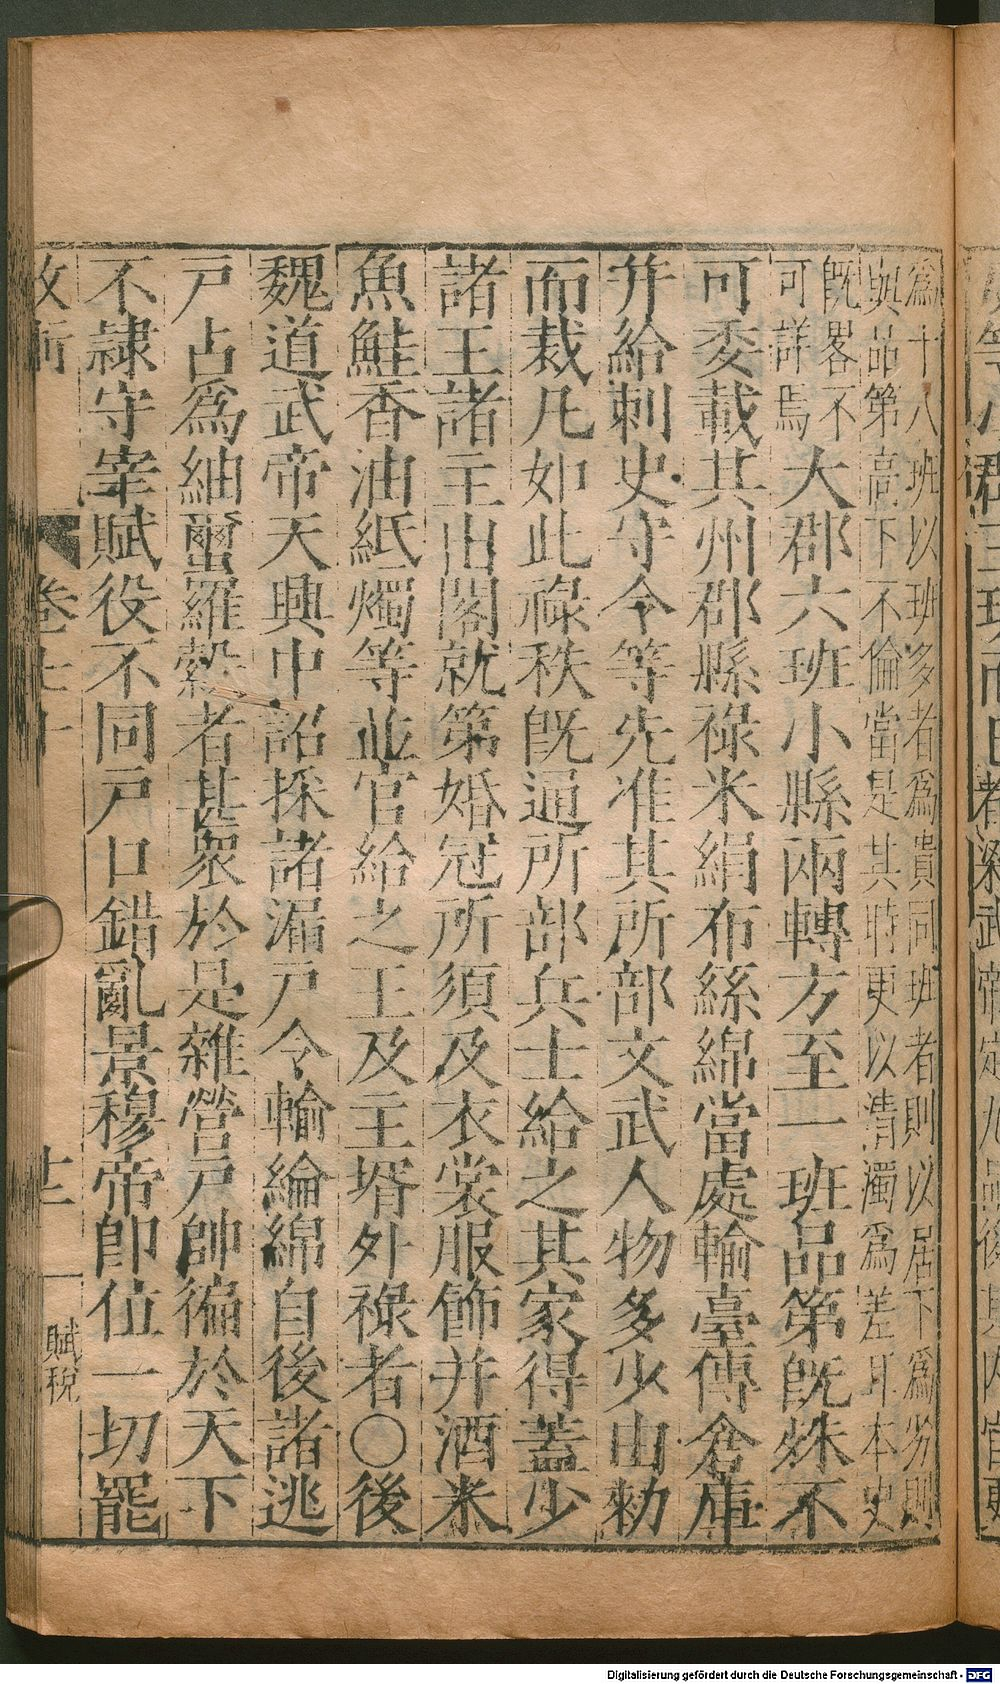 爲十八班以班多者爲貴同班者則以居下爲劣則
與品第高下不倫當是其時更以清濁爲差耳本史
旣畧不
可詳焉
大郡六班小縣兩轉方至一班品第旣殊不
可委載其州郡縣祿米絹布絲綿當處輸臺傳倉庫
并給刺史守令等先准其所部文武人物多少由勑
而裁凡如此祿秩旣通所部兵士給之其家得蓋少
諸王諸主出閣就第婚冠所須及衣裳服飾并酒米
魚鮭香油紙燭等並官給之王及主壻外祿者〇後
魏道武帝天興中詔採諸漏戸令輸綸綿自後諸逃
戸占爲紬蠒羅縠者甚衆於是雜營戸帥徧於天下
不隷守宰賦役不同戸口錯亂景穆帝卽位一切罷
卷
賦稅
Digitalisierung gefördert durch die Deutsche Forschungsgemeinschaft - DFG